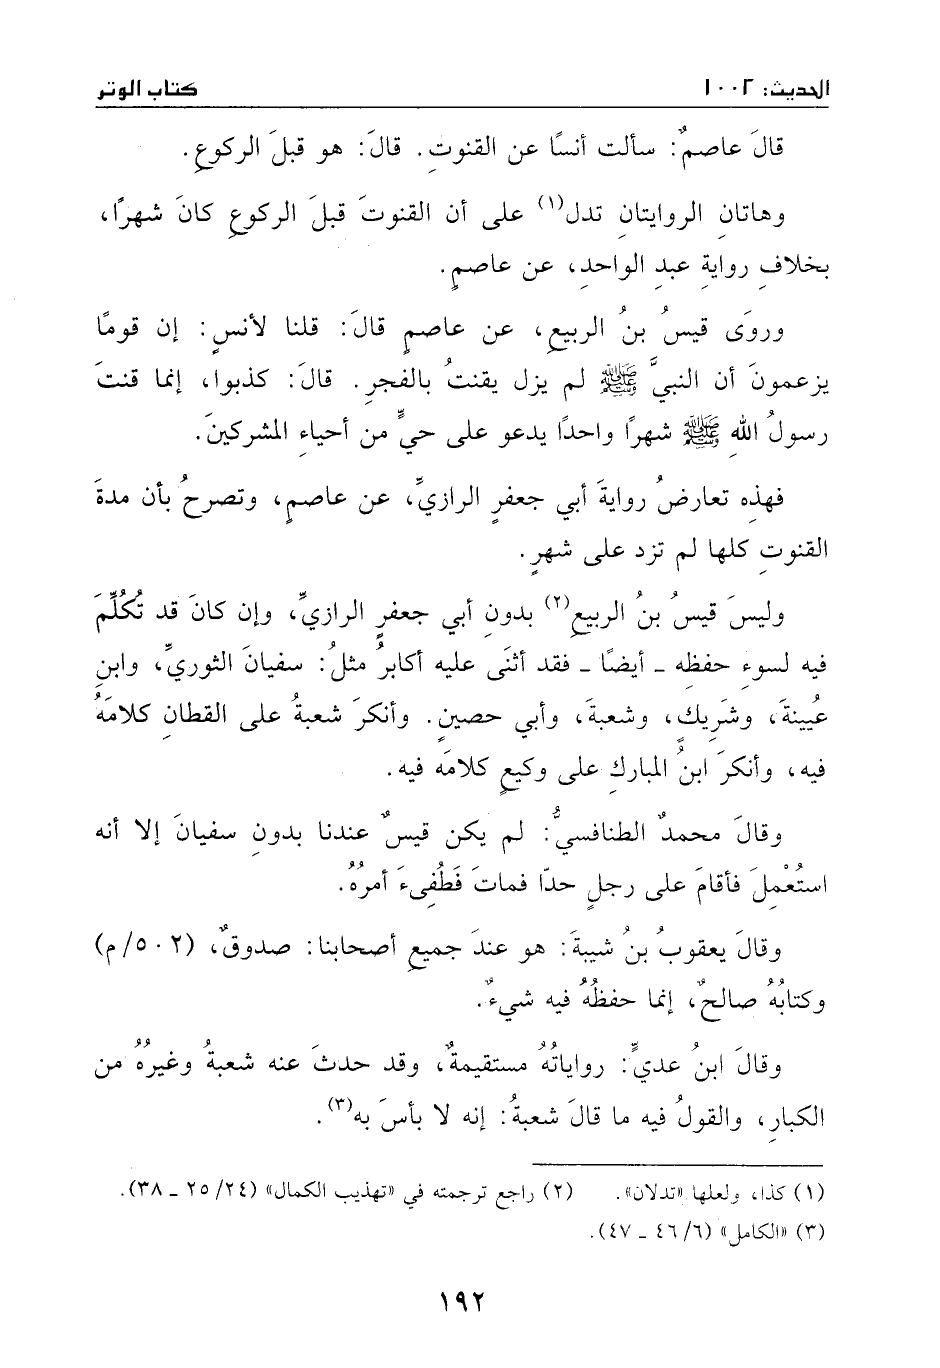 الحديث: ١٠٠٢
كتاب الوتر
قالَ عاصمٌ: سألت أنسًا عن القنوتِ. قالَ: هو قبلَ الركوعِ.
وهاتانِ الروايتانِ تدل(١) على أن القنوتَ قبلَ الركوعِ كانَ شهرًا،
بخلافِ روايةِ عبدِ الواحدِ، عن عاصمٍ.
وروَى قيسُ بنُ الربيعِ، عن عاصمٍ قالَ: قلنا لأنسٍ: إن قومًا
يزعمونَ أن النبيَّ ﷺ لم يزل يقنتُ بالفجرِ. قالَ: كذبوا، إنما قنتَ
رسولُ اللهِ ﷺ شهرًا واحدًا يدعو على حيٍّ من أحياءِ المشركينَ.
فهذِه تعارضُ روايةَ أبي جعفرٍ الرازيِّ، عن عاصمٍ، وتصرحُ بأن مدةَ
القنوتِ كلها لم تزد على شهرٍ.
وليسَ قيسُ بنُ الربيعِ(٢) بدونِ أبي جعفرٍ الرازيِّ، وإن كانَ قد تُكُلِّمَ
فيه لسوءِ حفظِه - أيضًا - فقد أثنَى عليه أكابرُ مثلُ: سفيانَ الثوريِّ، وابنِ
عُيينةَ، وشَرِيكٍ، وشعبةَ، وأبي حصينٍ. وأنكرَ شعبةُ على القطانِ كلامَهُ
فيه، وأنكرَ ابنُ المباركِ على وكيعٍ كلامَه فيه.
وقالَ محمدٌ الطنافسيُّ: لم يكن قيسٌ عندنا بدونِ سفيانَ إلا أنه
استُعْمِلَ فأقامَ على رجلٍ حدّا فماتَ فَطُفِىءَ أمرُهُ.
وقالَ يعقوبُ بنُ شيبةَ: هو عندَ جميعِ أصحابنا: صدوقٌ، (٥٠٢/م)
وكتابُهُ صالحٌ، إنما حفظُهُ فيه شيءٌ.
وقالَ ابنُ عديٍّ: رواياتُهُ مستقيمةٌ، وقد حدثَ عنه شعبةُ وغيرُهُ من
الكبارِ، والقولُ فيه ما قالَ شعبةُ: إنه لا بأسَ به(٣).
(١) كذا، ولعلها «تدلان».
(٢) راجع ترجمته في «تهذيب الكمال» (٢٤/ ٢٥ - ٣٨).
(٣) «الكامل» (٦/ ٤٦ - ٤٧).
١٩٢